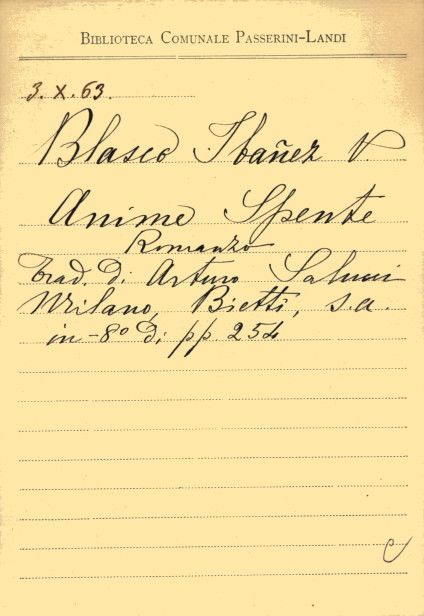 BIBLIOTECA COMUNALE PASSERINI-LANDI
3. X. 63.
Blasco Ibañez V.
Anime Spente
Romanzo
Trad. di Arturo Salucci
Milano, Bietti, s.a.
in-8º di pp. 254